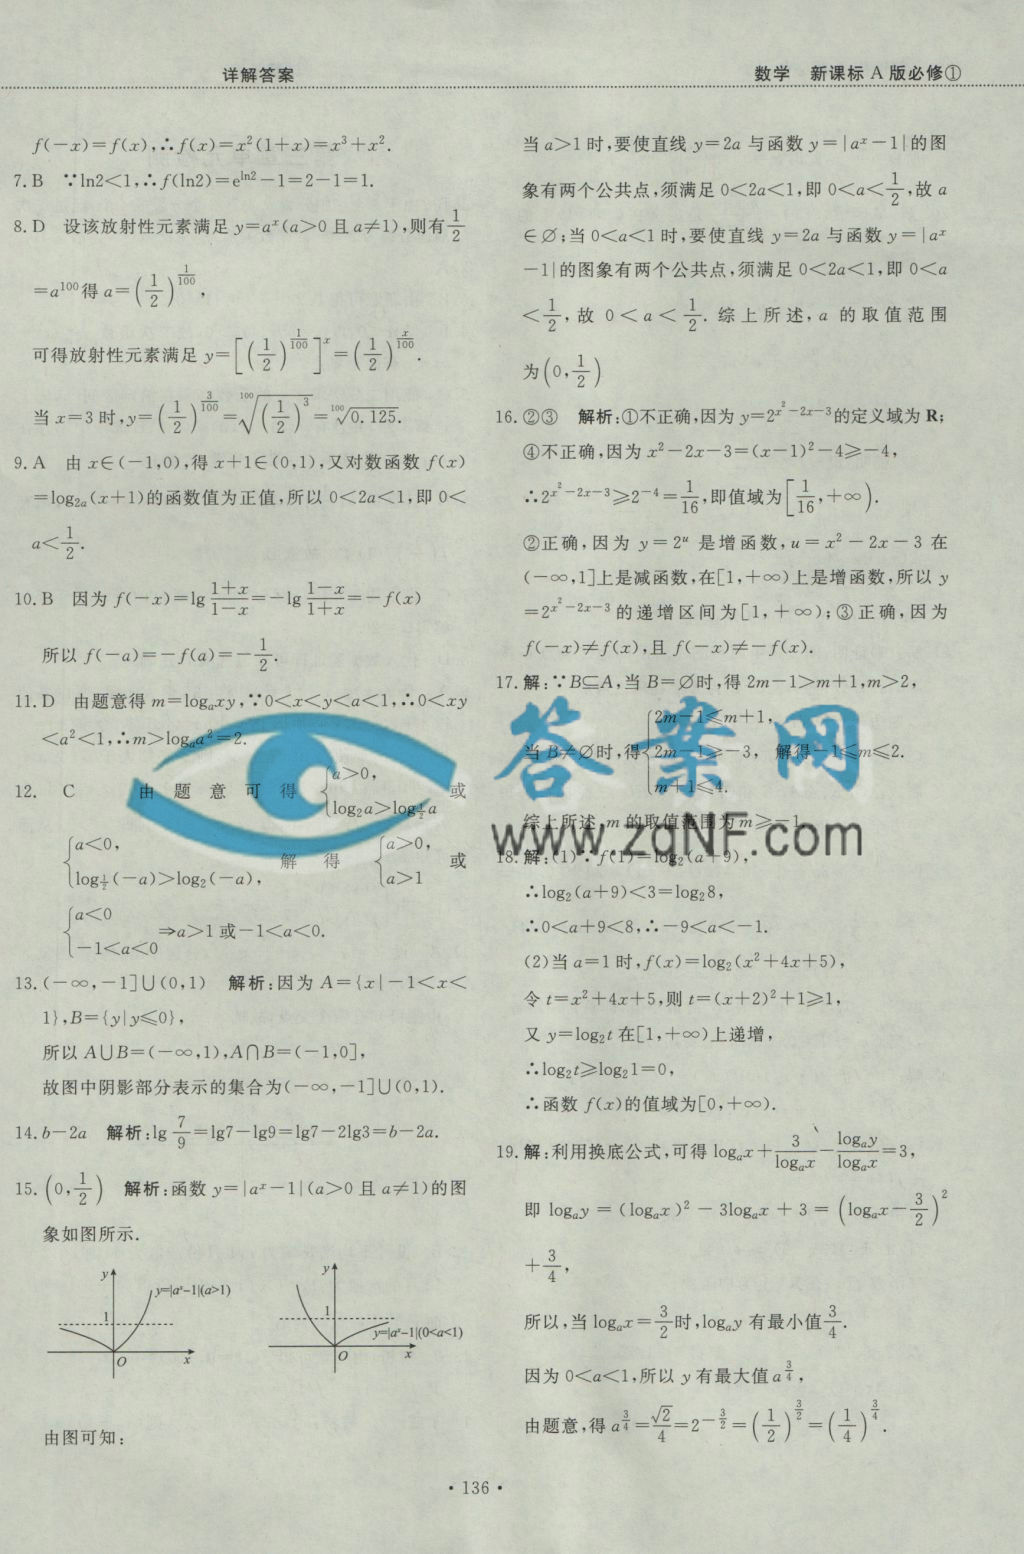 详解答案
数学 新课标 A 版必修①
f(-x)=f(x),∴f(x)=x²(1+x)=x³+x².
7. B ∵ln2<1,∴f(ln2)=e^{ln2}-1=2-1=1.
8. D 设该放射性元素满足 y=a^x(a>0 且 a≠1),则有\frac{1}{2}
=a^{100}得 a=(\frac{1}{2})^{\frac{1}{100}},
可得放射性元素满足 y=[(\frac{1}{2})^{\frac{1}{100}}]^x=(\frac{1}{2})^{\frac{x}{100}}.
当 x=3 时,y=(\frac{1}{2})^{\frac{3}{100}}=\sqrt[100]{(\frac{1}{2})^3}=\sqrt[100]{0.125}.
9. A 由 x∈(-1,0),得 x+1∈(0,1),又对数函数 f(x)
=log_{2a}(x+1)的函数值为正值,所以 0<2a<1,即 0<
a<\frac{1}{2}.
10. B 因为 f(-x)=lg\frac{1+x}{1-x}=-lg\frac{1-x}{1+x}=-f(x)
所以 f(-a)=-f(a)=-\frac{1}{2}.
11. D 由题意得 m=log_a xy,∵0<x<y<a<1,∴0<xy
<a²<1,∴m>log_a a²=2.
12. C 由题意可得{a>0, log_2 a>log_{\frac{1}{2}} a 或
{a<0, log_{\frac{1}{2}}(-a)>log_2(-a), 解得 {a>0, a>1 或
{a<0 -1<a<0 ⇒a>1 或-1<a<0.
13. (-∞,-1]∪(0,1) 解析:因为 A={x|-1<x<
1},B={y|y≤0},
所以 A∪B=(-∞,1),A∩B=(-1,0],
故图中阴影部分表示的集合为(-∞,-1]∪(0,1).
14. b-2a 解析:lg\frac{7}{9}=lg7-lg9=lg7-2lg3=b-2a.
15. (0,\frac{1}{2}) 解析:函数 y=|a^x-1|(a>0 且 a≠1)的图
象如图所示.
y
y=|a^x-1|(a>1)
1
O
x
y
1
y=|a^x-1|(0<a<1)
O
x
由图可知:
当 a>1 时,要使直线 y=2a 与函数 y=|a^x-1|的图
象有两个公共点,须满足 0<2a<1,即 0<a<\frac{1}{2},故 a
∈∅;当 0<a<1 时,要使直线 y=2a 与函数 y=|a^x
-1|的图象有两个公共点,须满足 0<2a<1,即 0<a
<\frac{1}{2},故 0<a<\frac{1}{2}.综上所述,a 的取值范围
为(0,\frac{1}{2})
16. ②③ 解析:①不正确,因为 y=2^{x²-2x-3}的定义域为 R;
④不正确,因为 x²-2x-3=(x-1)²-4≥-4,
∴2^{x²-2x-3}≥2^{-4}=\frac{1}{16},即值域为[\frac{1}{16},+∞).
②正确,因为 y=2^u 是增函数,u=x²-2x-3 在
(-∞,1]上是减函数,在[1,+∞)上是增函数,所以 y
=2^{x²-2x-3}的递增区间为[1,+∞);③正确,因为
f(-x)≠f(x),且 f(-x)≠-f(x).
17. 解:∵B⊆A,当 B=∅时,得 2m-1>m+1,m>2,
当 B≠∅时,得{2m-1≤m+1, 2m-1≥-3, m+1≤4. 解得-1≤m≤2.
综上所述,m 的取值范围为 m≥-1.
18. 解:(1)∵f(1)=log_2(a+9),
∴log_2(a+9)<3=log_2 8,
∴0<a+9<8,∴-9<a<-1.
(2)当 a=1 时,f(x)=log_2(x²+4x+5),
令 t=x²+4x+5,则 t=(x+2)²+1≥1,
又 y=log_2 t 在[1,+∞)上递增,
∴log_2 t≥log_2 1=0,
∴函数 f(x)的值域为[0,+∞).
19. 解:利用换底公式,可得 log_a x+\frac{3}{log_a x}-\frac{log_a y}{log_a x}=3,
即 log_a y=(log_a x)²-3log_a x+3=(log_a x-\frac{3}{2})²
+\frac{3}{4},
所以,当 log_a x=\frac{3}{2}时,log_a y 有最小值\frac{3}{4}.
因为 0<a<1,所以 y 有最大值 a^{\frac{3}{4}},
由题意,得 a^{\frac{3}{4}}=\frac{\sqrt{2}}{4}=2^{-\frac{3}{2}}=(\frac{1}{2})^{\frac{3}{2}}=(\frac{1}{4})^{\frac{3}{4}}.
答案网
www.zqNF.com
· 136 ·